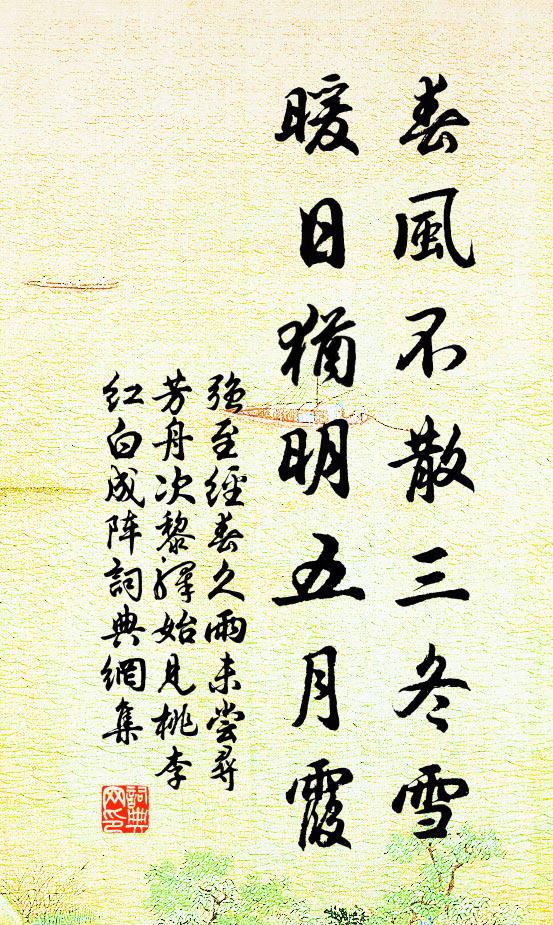 春風不散三冬雪
暖日猶明五月霞
強至經春久雨未嘗尋
芳舟次黎驛始見桃李
红白成阵詞典網集
詞典
网印